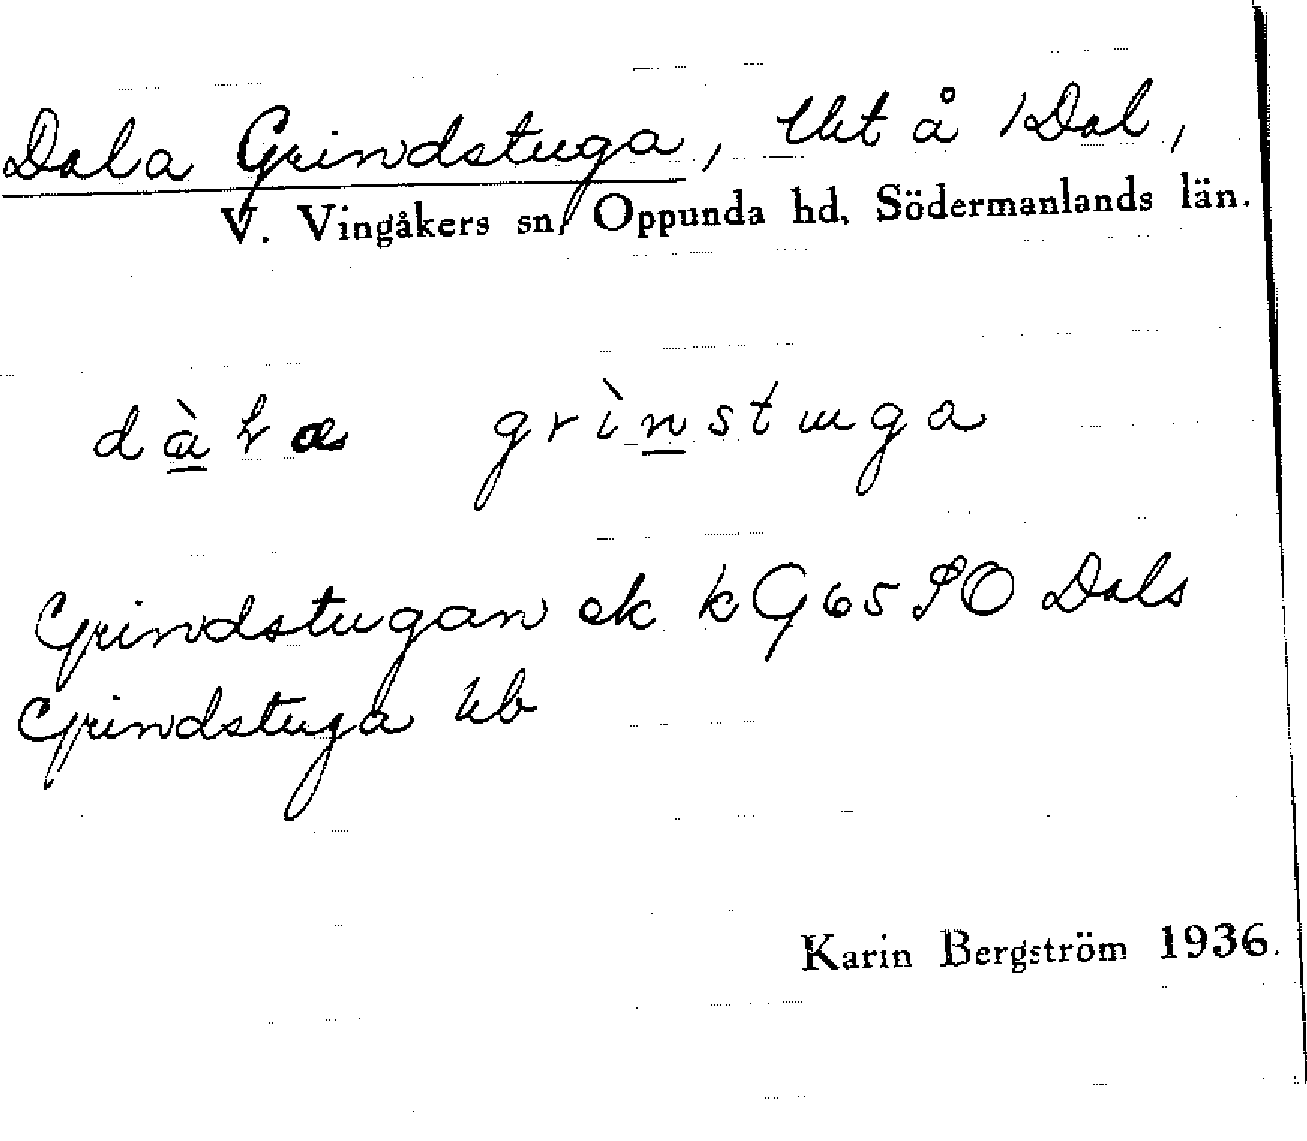 Dala Grindstuga, tht å 1Dal,
V. Vingåkers sn, Oppunda hd, Södermanlands län.
grìnstɯga
Grindstugan ek k G65 SO Dals
Grindstuga hb
Karin Bergström 1936.